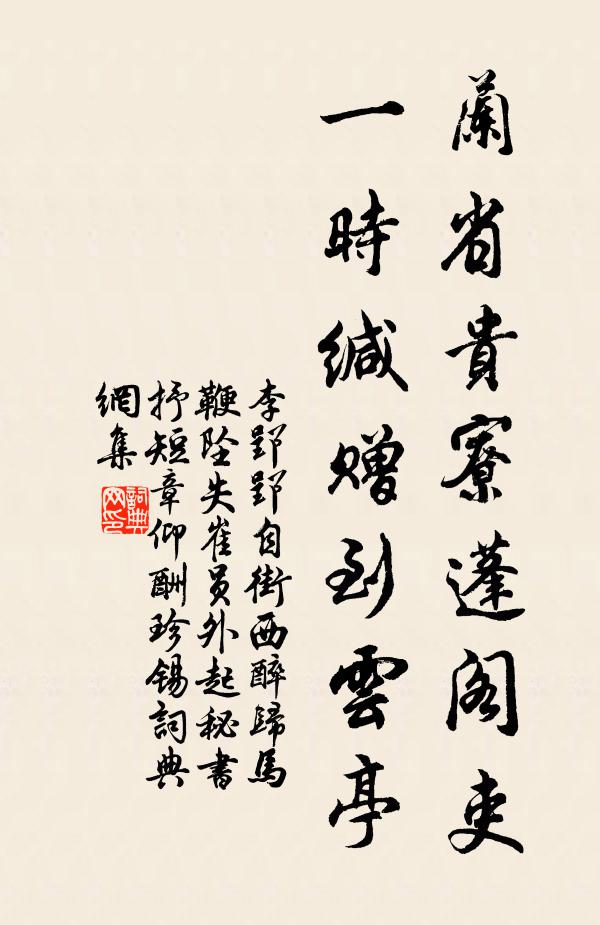 蘭省貴寮蓬閣吏
一時緘贈到雲亭
李郢郢自街西醉歸馬
鞭墜失崔員外起秘書
抒短章仰酬珍錫詞典
網集
詞典
网印